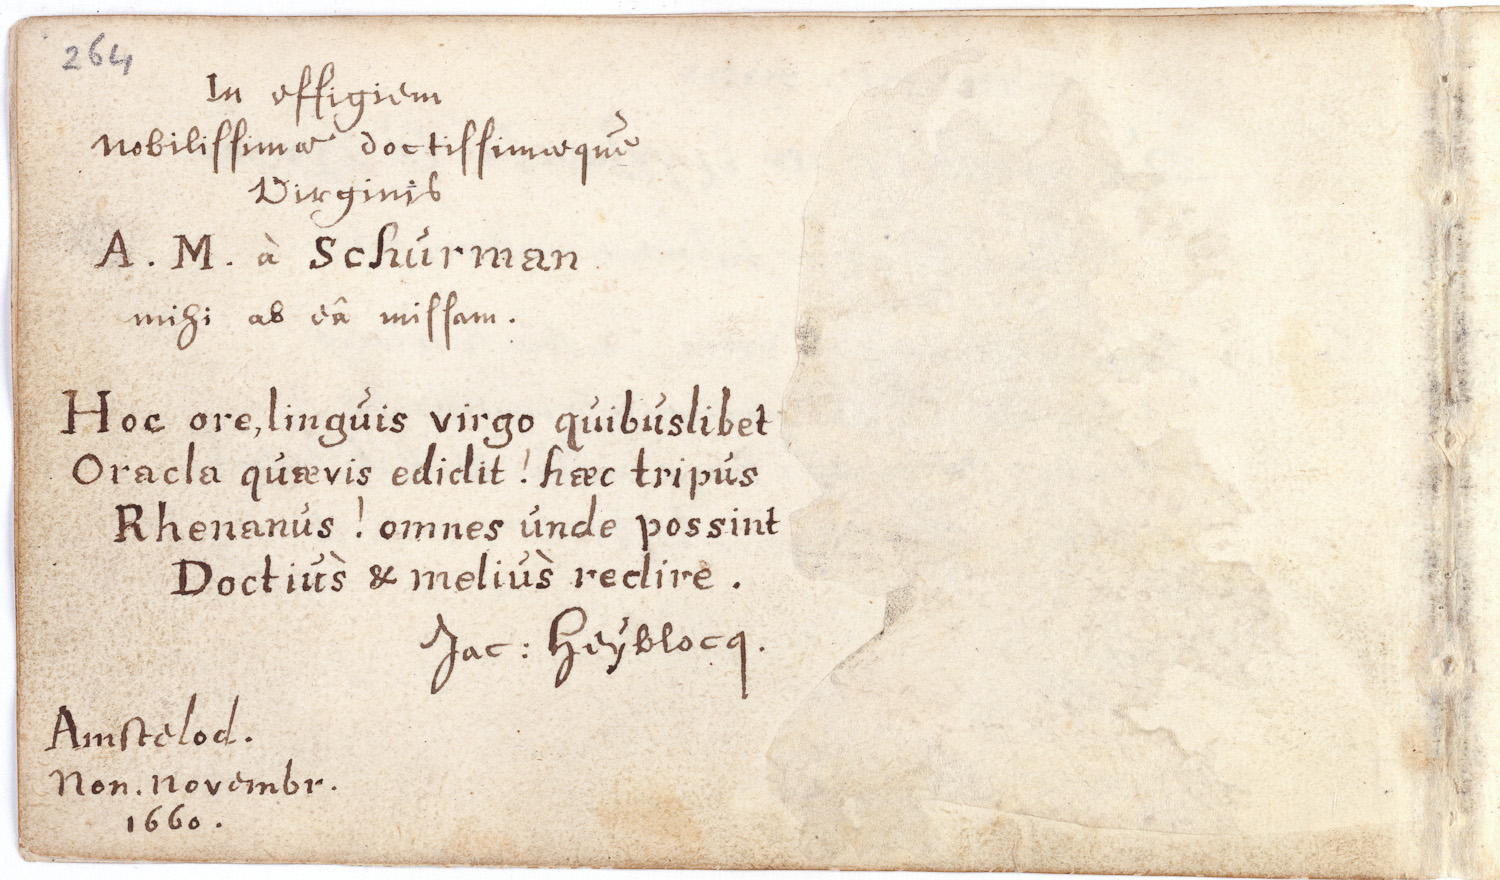 264
In effigiem
Nobilissimæ doctissimæque
Virginis
A. M. à Schúrman
mihi ab eâ missam.
Hoc ore, lingúis virgo qúibúslibet
Oracla qúævis edidit! hæc tripús
Rhenanús! omnes únde possint
Doctiús̀ & meliús̀ redire.
Jac: Heÿblocq.
Amstelod.
Non. Novembr.
1660.